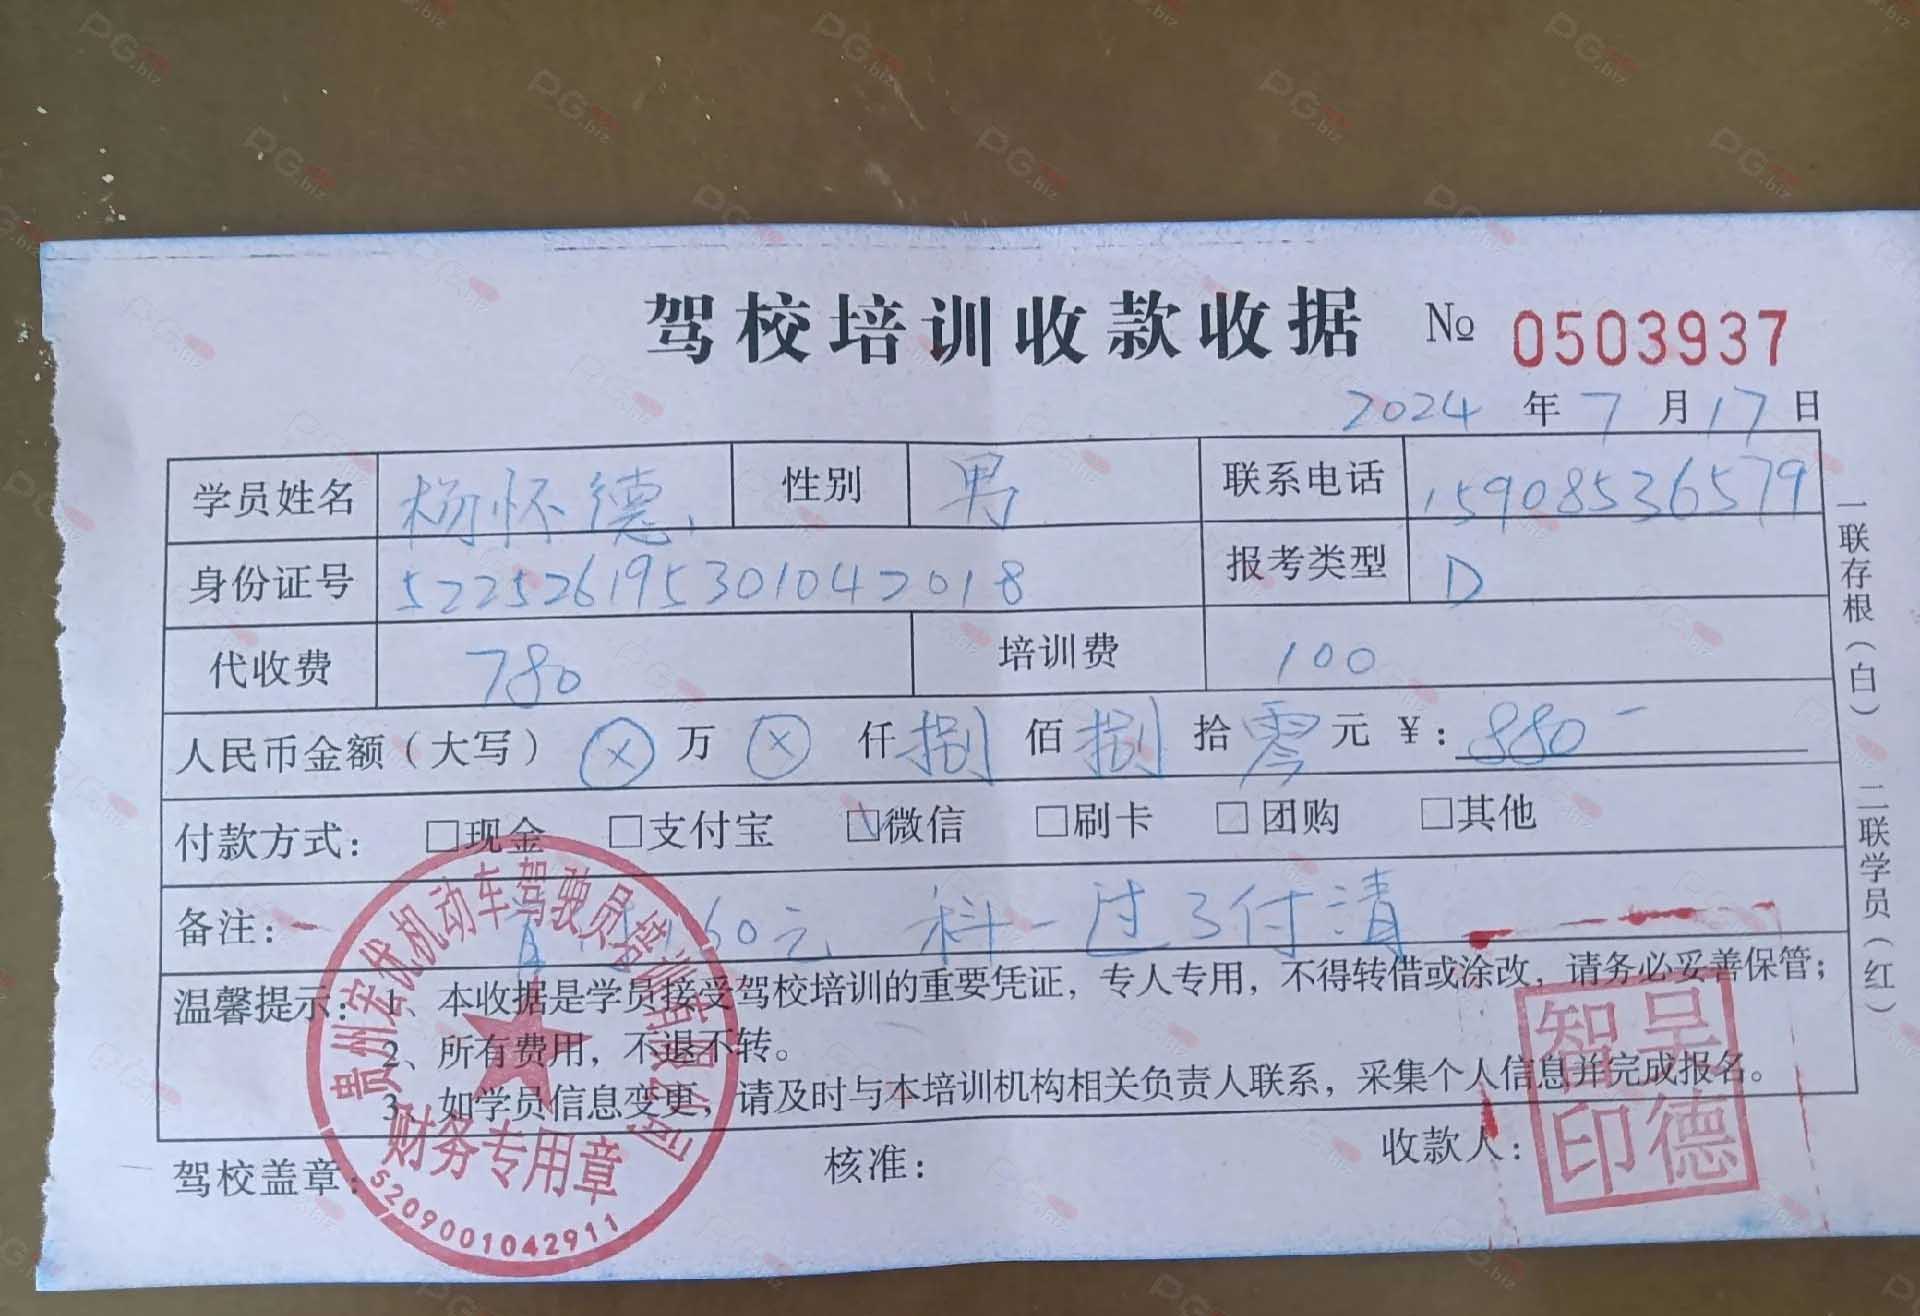 驾校培训收款收据 № 0503937
2024 年 7 月 17 日
学员姓名 杨怀德 性别 男 联系电话 15908536579
身份证号 522526195301042018 报考类型 D
代收费 780 培训费 100
人民币金额（大写） ⊗ 万 ⊗ 仟 捌 佰 捌 拾 零 元 ¥：880-
付款方式： □现金 □支付宝 ☑微信 □刷卡 □团购 □其他
备注： 60元 科一过了付清
温馨提示：1、本收据是学员接受驾校培训的重要凭证，专人专用，不得转借或涂改，请务必妥善保管；
2、所有费用，不退不转。
3、如学员信息变更，请及时与本培训机构相关负责人联系，采集个人信息并完成报名。
驾校盖章： 核准： 收款人：
一联存根（白） 二联学员（红）
贵州安优机动车驾驶员培训有限公司
财务专用章
5209001042911
呈德智印